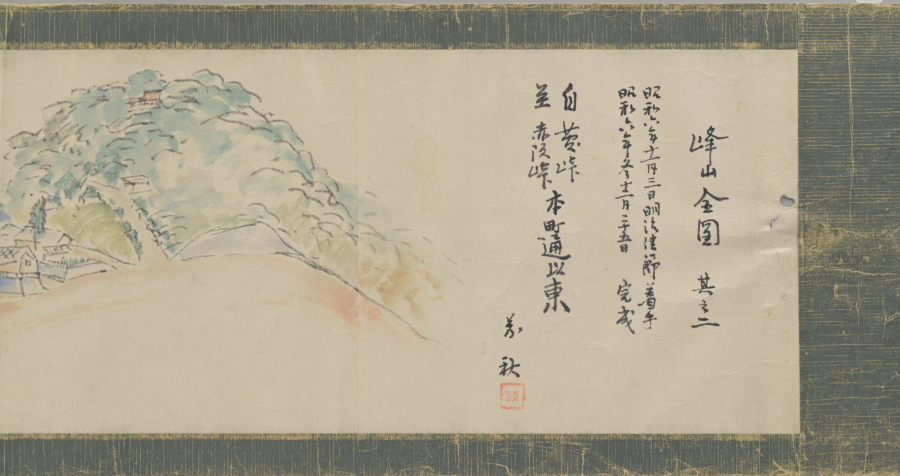 峰山全圖 其之二
昭和六年十一月三日明治佳節着手
昭和六年冬十一月二十五日 完成
自 峠 本町通以東
至 赤坂峠
秋